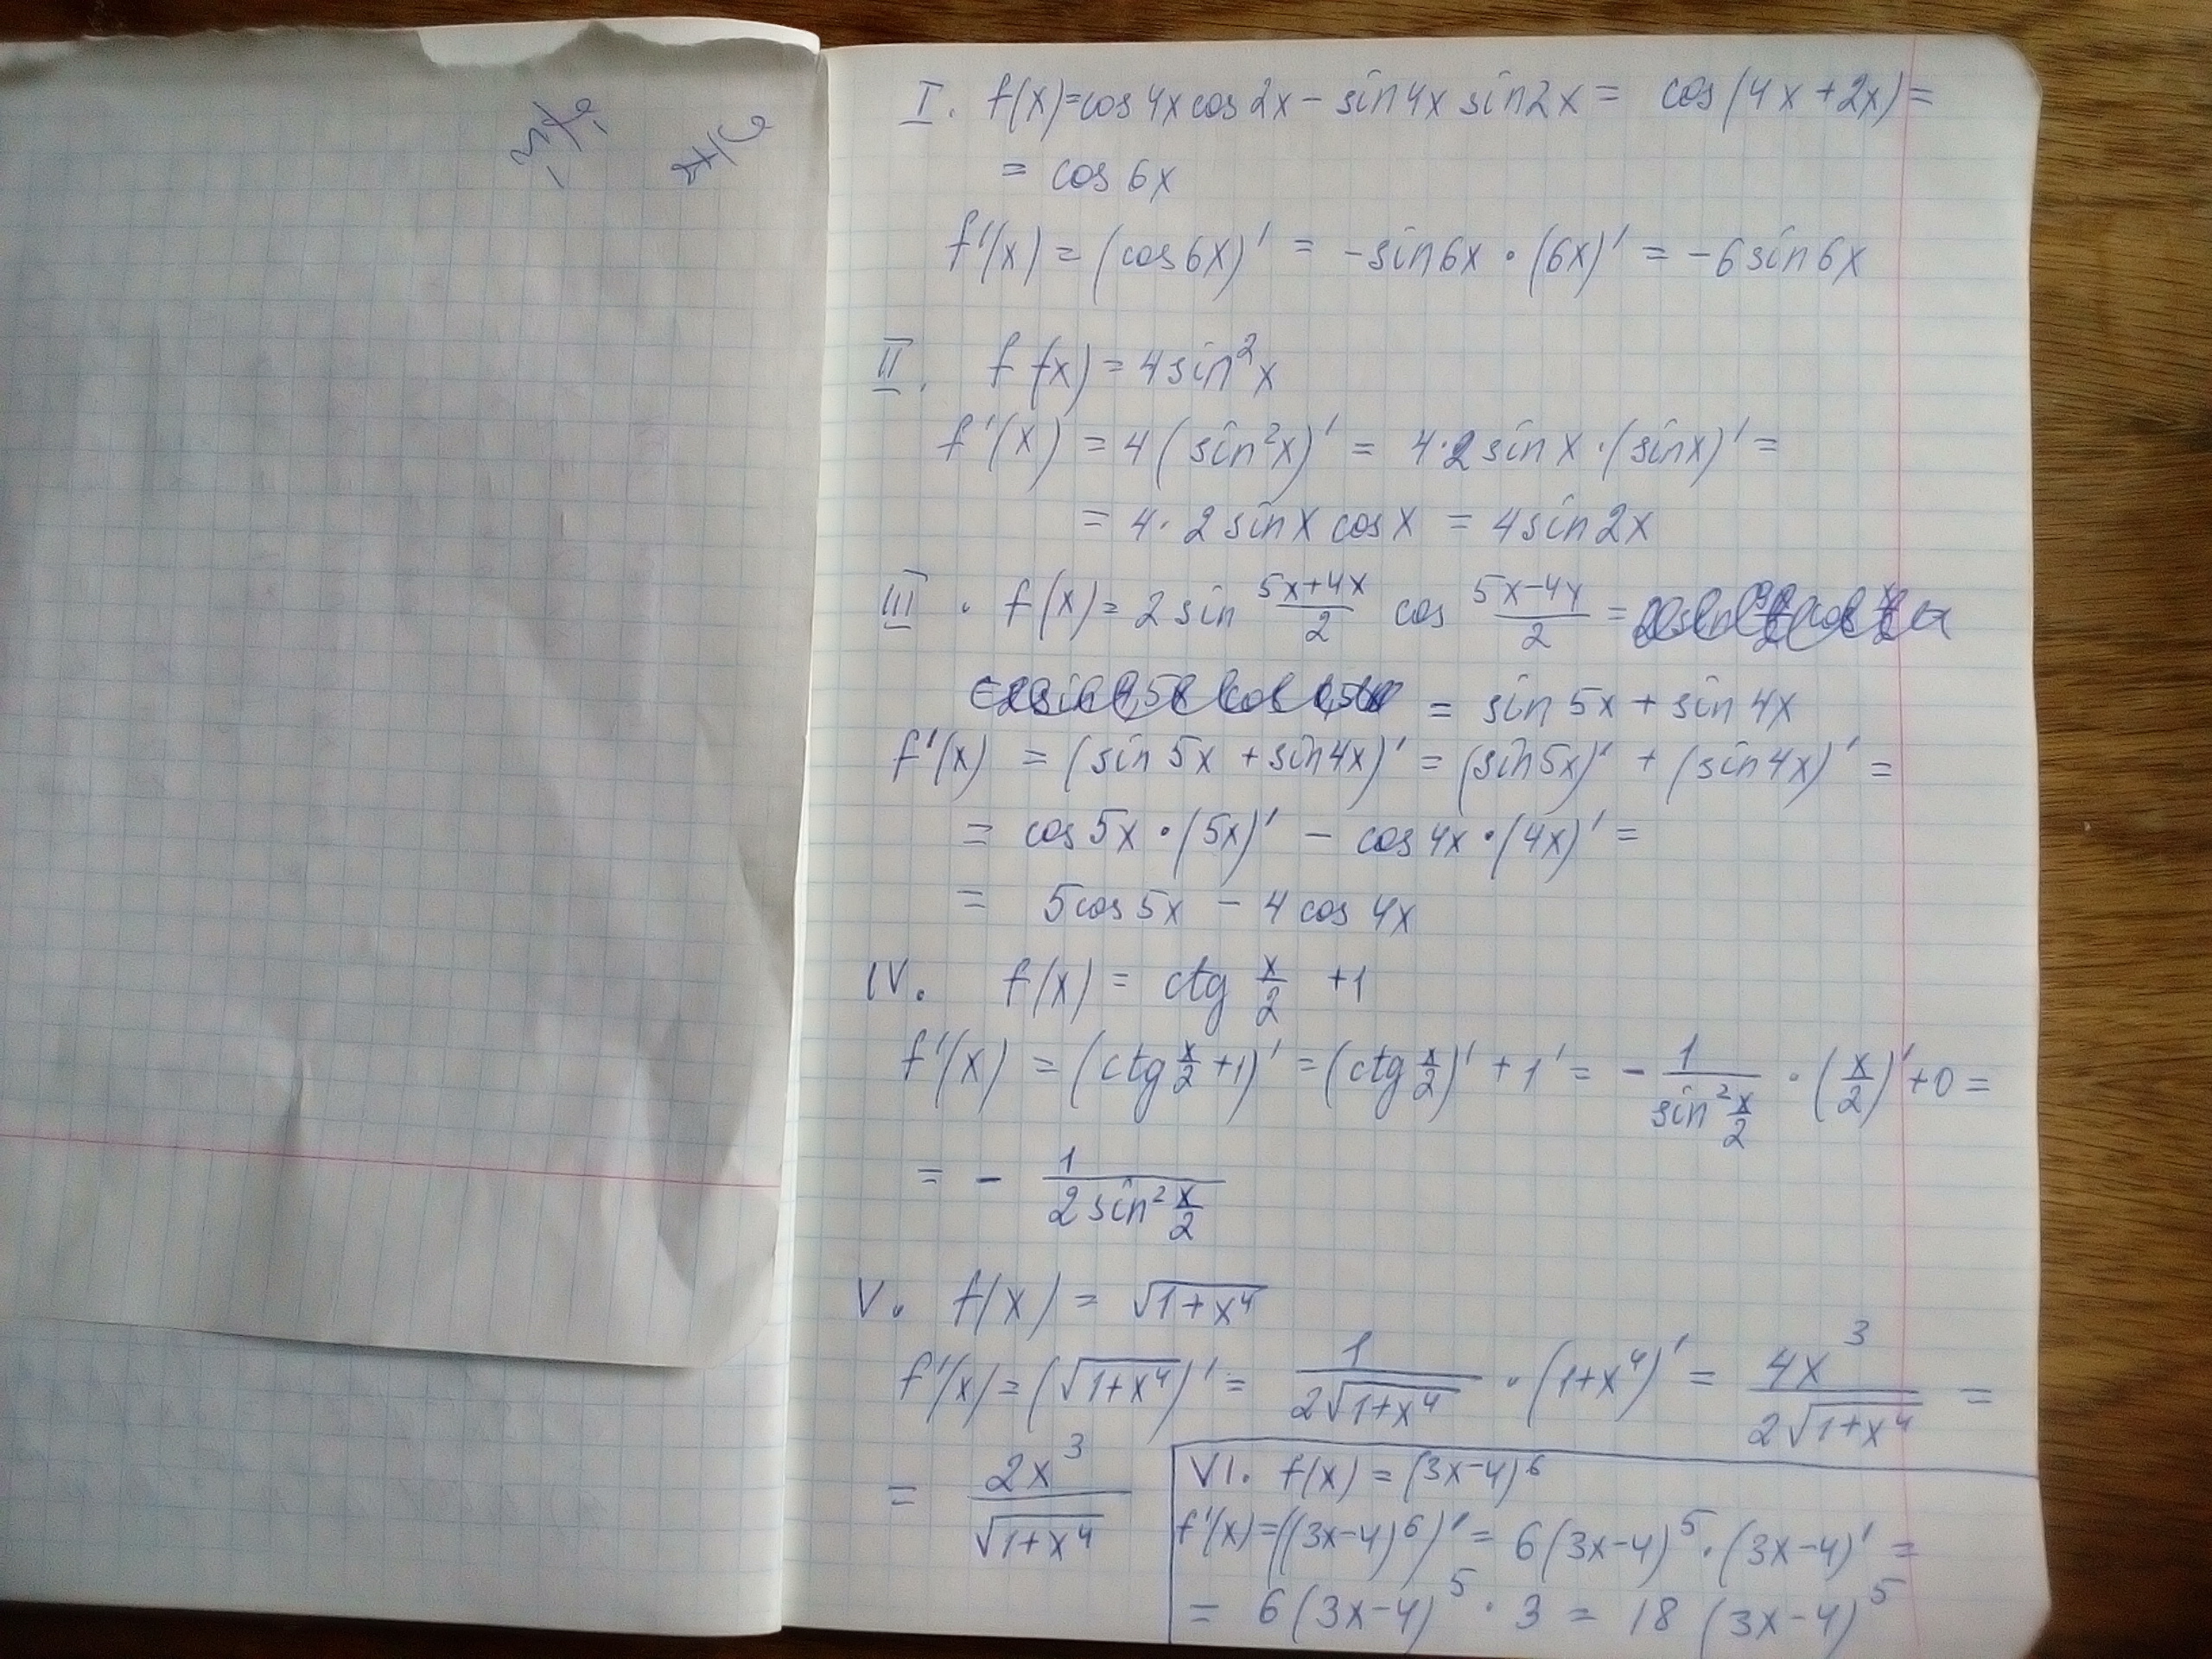 I. f(x)=cos4xcos2x-sin4xsin2x= cos(4x+2x)=
= cos6x
f'(x)=(cos6x)' = -sin6x·(6x)' = -6sin6x
II. f(x)=4sin²x
f'(x)=4(sin²x)' = 4·2sinx·(sinx)' =
= 4·2sinxcosx = 4sin2x
III. f(x)=2sin (5x+4x)/2 cos (5x-4x)/2 =
= sin5x+sin4x
f'(x) = (sin5x+sin4x)' = (sin5x)' + (sin4x)' =
= cos5x·(5x)' - cos4x·(4x)' =
= 5cos5x - 4cos4x
IV. f(x) = ctg x/2 +1
f'(x) = (ctg x/2 +1)' = (ctg x/2)' + 1' = - 1/(sin² x/2) · (x/2)' +0 =
= - 1/(2sin² x/2)
V. f(x) = √(1+x⁴)
f'(x)=(√(1+x⁴))' = 1/(2√(1+x⁴)) · (1+x⁴)' = 4x³/(2√(1+x⁴)) =
= 2x³/√(1+x⁴)
VI. f(x) = (3x-4)⁶
f'(x)=((3x-4)⁶)' = 6(3x-4)⁵·(3x-4)' =
= 6(3x-4)⁵·3 = 18(3x-4)⁵